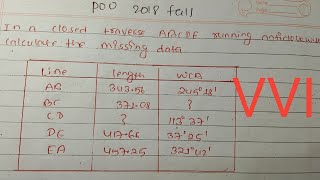 POU 2018 fall
In a closed traverse ABCDE running anticlockwise
calculate the missing data
Line length WCB
AB 343.56 245°18'
BC 371.08 ?
CD ? 113°37'
DE 417.66 37°25'
EA 457.25 321°42'
VVI